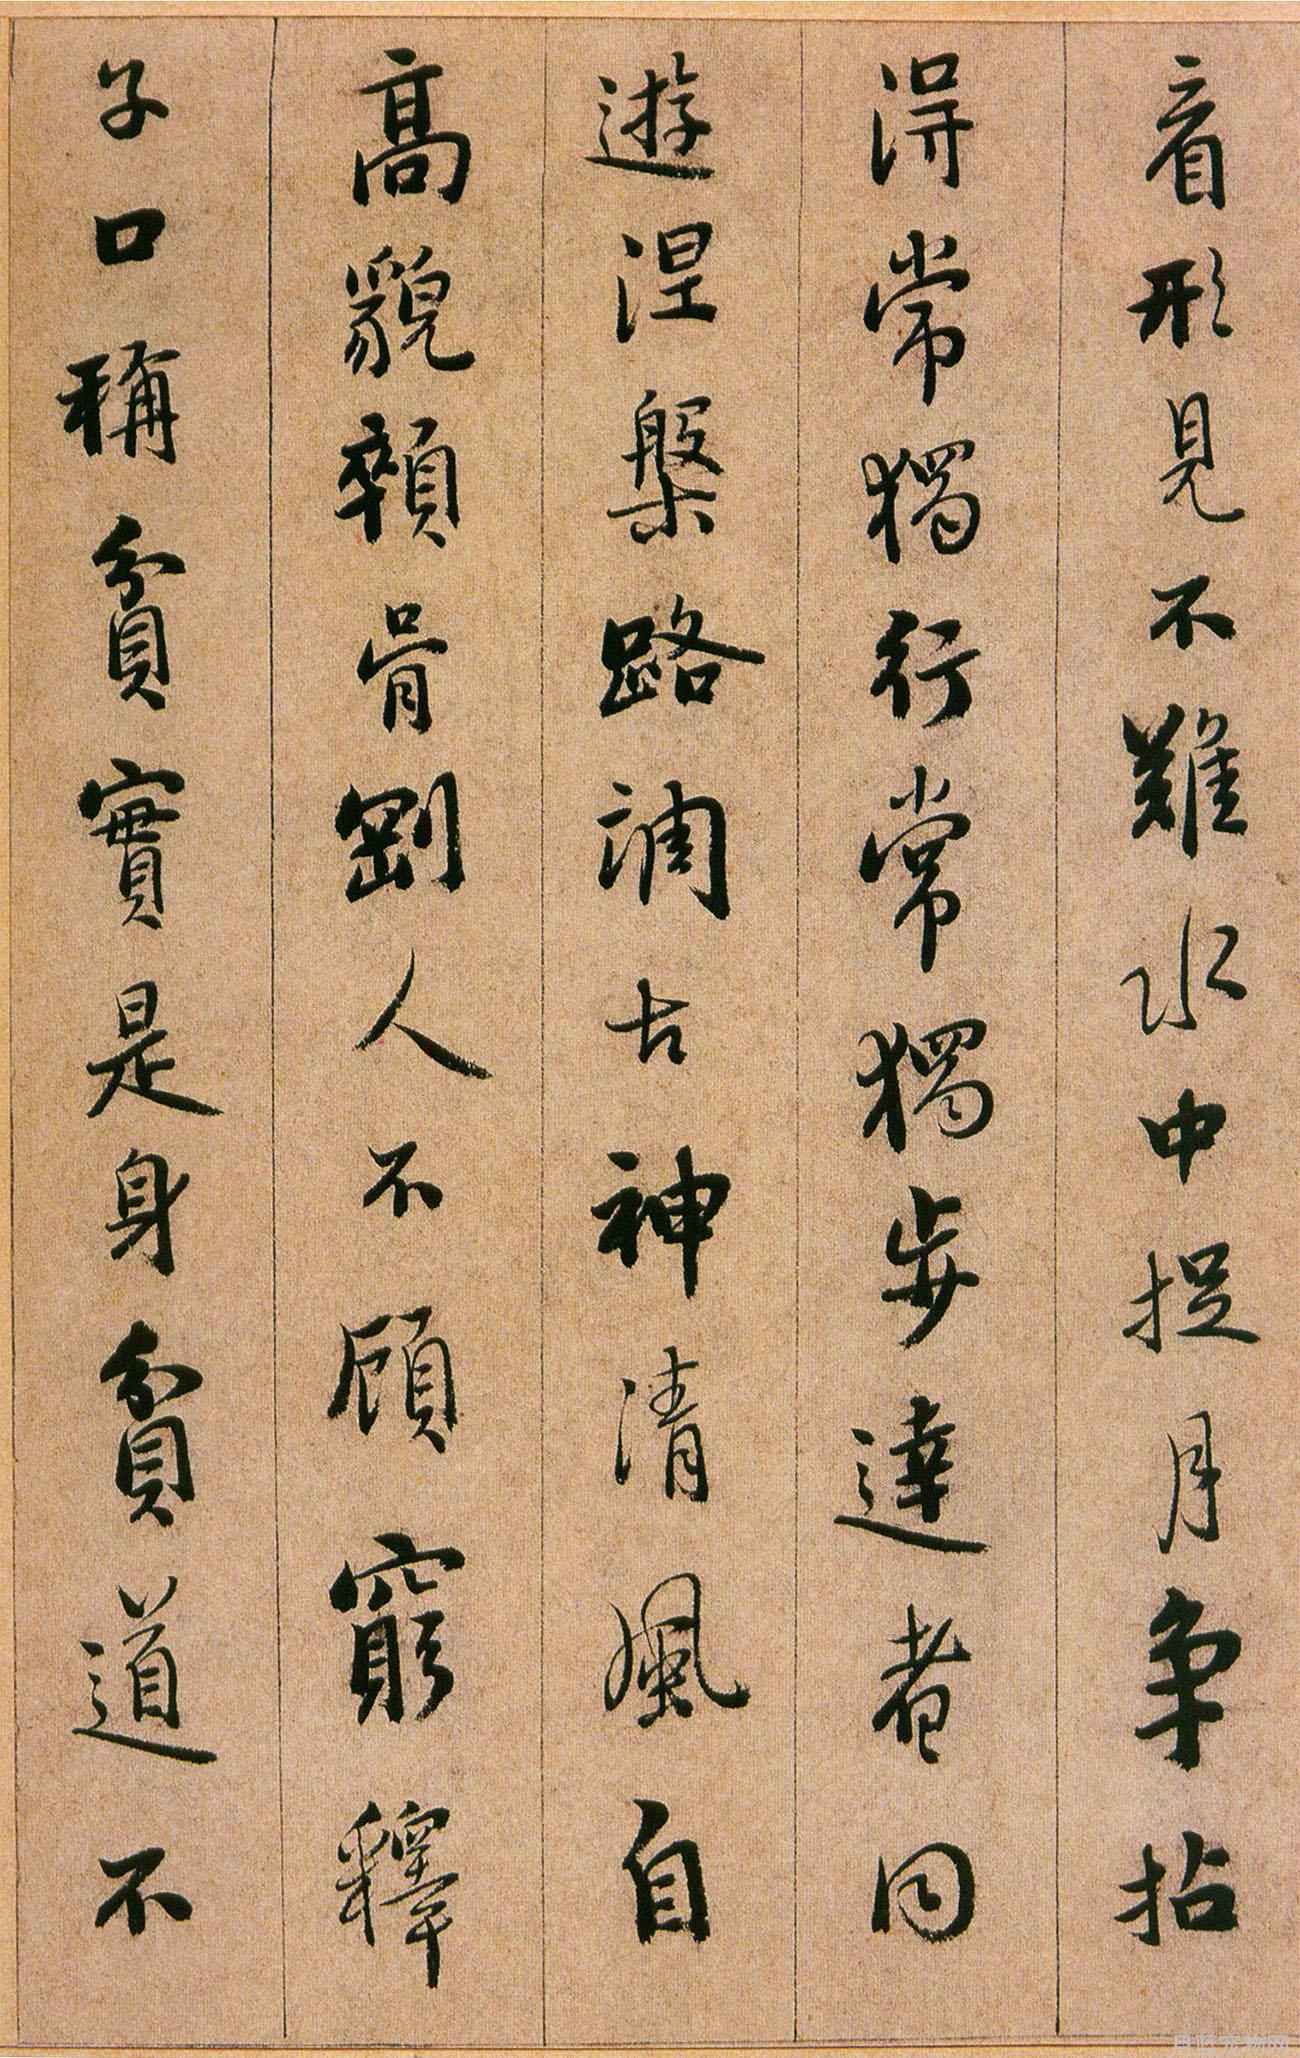 看形見不難水中捉月争拈
得常獨行常獨步達者同
遊涅槃路調古神清風自
高貌顇骨剛人不顧窮釋
子口稱貧實是身貧道不